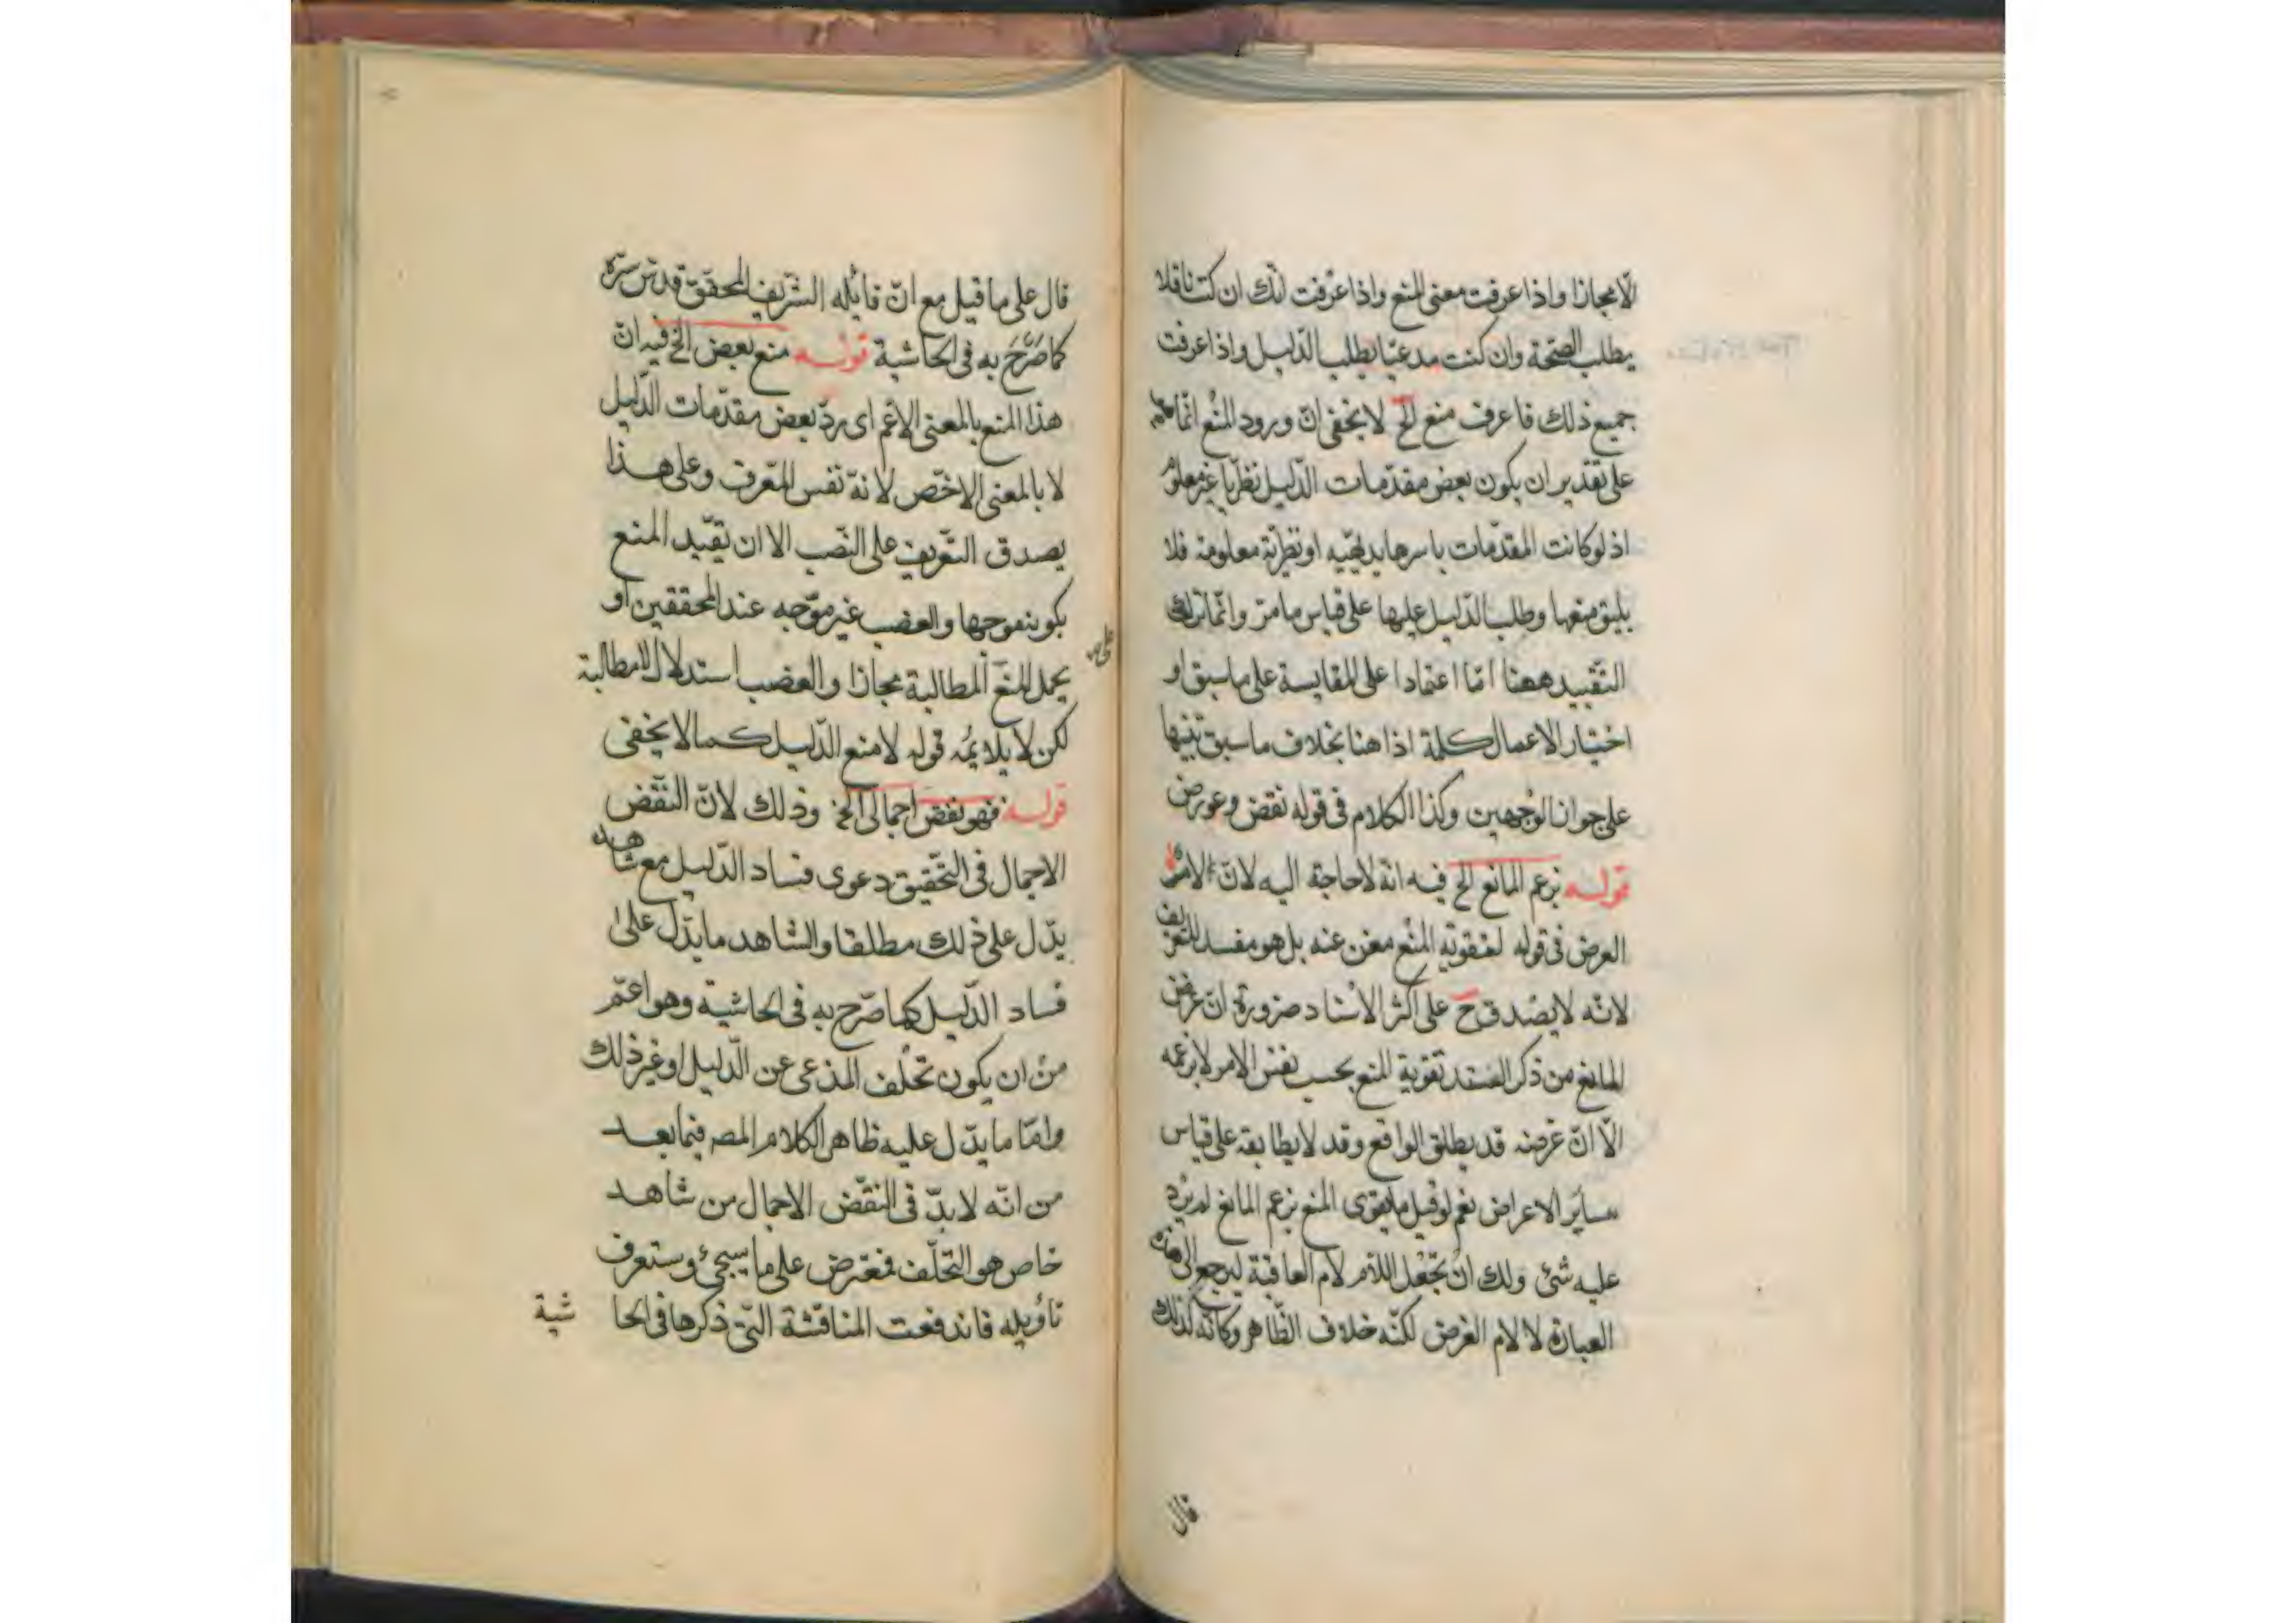 الا مجازا واذا عرفت معنى المنع واذا عرفت انك ان كنت ناقلا
يطلب الصحة وان كنت مدعيا يطلب الدليل واذا عرفت
جميع ذلك فاعرف منع الخ لا يخفى ان ورود المنع انما هو
على تقدير ان يكون بعض مقدمات الدليل نظريا غير معلوم
اذ لو كانت المقدمات باسرها بديهية او نظرية معلومة فلا
يليق منعها وطلب الدليل عليها على قياس ما مر وانما ترك
التقييد ههنا اما اعتمادا على المقايسة على ما سبق او
اختيار الاعمال كلمة اذا هنا بخلاف ما سبق تنبيها
على جواز الوجهين وكذا الكلام فى قوله نقض وعورض
قوله بزعم المانع الخ فيه انه لا حاجة اليه لان الامر
الغرض فى قوله لتقوية المنع مغن عنه بل هو مفسد للتعريف
لانه لا يصدق ح على اكثر الاسناد ضرورة ان غرض
المانع من ذكر السند تقوية المنع بحسب نفس الامر لا بزعمه
الا ان غرضه قد يطابق الواقع وقد لا يطابقه على قياس
ساير الاغراض نعم لو قيل ما يقوى المنع بزعم المانع لم يرد
عليه شئ ولك ان تجعل اللام لام العاقبة ليرجع الى هذه
العبارة لا لام الغرض لكنه خلاف الظاهر وكانه لذلك
قال
قال على ما قيل مع ان قائله الشريف المحقق قدس سره
كما صرح به فى الحاشية قوله منع بعض الخ فيه ان
هذا المنع بالمعنى الاعم اى رد بعض مقدمات الدليل
لا بالمعنى الاخص لانه نفس المعرف وعلى هذا
يصدق التعريف على الغصب الا ان تقيد المنع
بكونه موجها والغصب غير موجه عند المحققين او
يحمل المنع المطالبة مجازا والغصب استدلال لا مطالبة
على
لكن لا يلايمه قوله لا منع الدليل كما لا يخفى
قوله فهو نقض اجمالى الخ وذلك لان النقض
الاجمال فى التحقيق دعوى فساد الدليل مع شاهد
يدل على ذلك مطلقا والشاهد ما يدل على
فساد الدليل كما صرح به فى الحاشية وهو اعم
من ان يكون تخلف المدعى عن الدليل او غير ذلك
واما ما يدل عليه ظاهر الكلام المصـ فيما بعد
من انه لا بد فى النقض الاجمال من شاهد
خاص هو التخلف فمعترض على ما سيجئ وستعرف
تاويله فاندفعت المناقشة التى ذكرها فى الحا شية